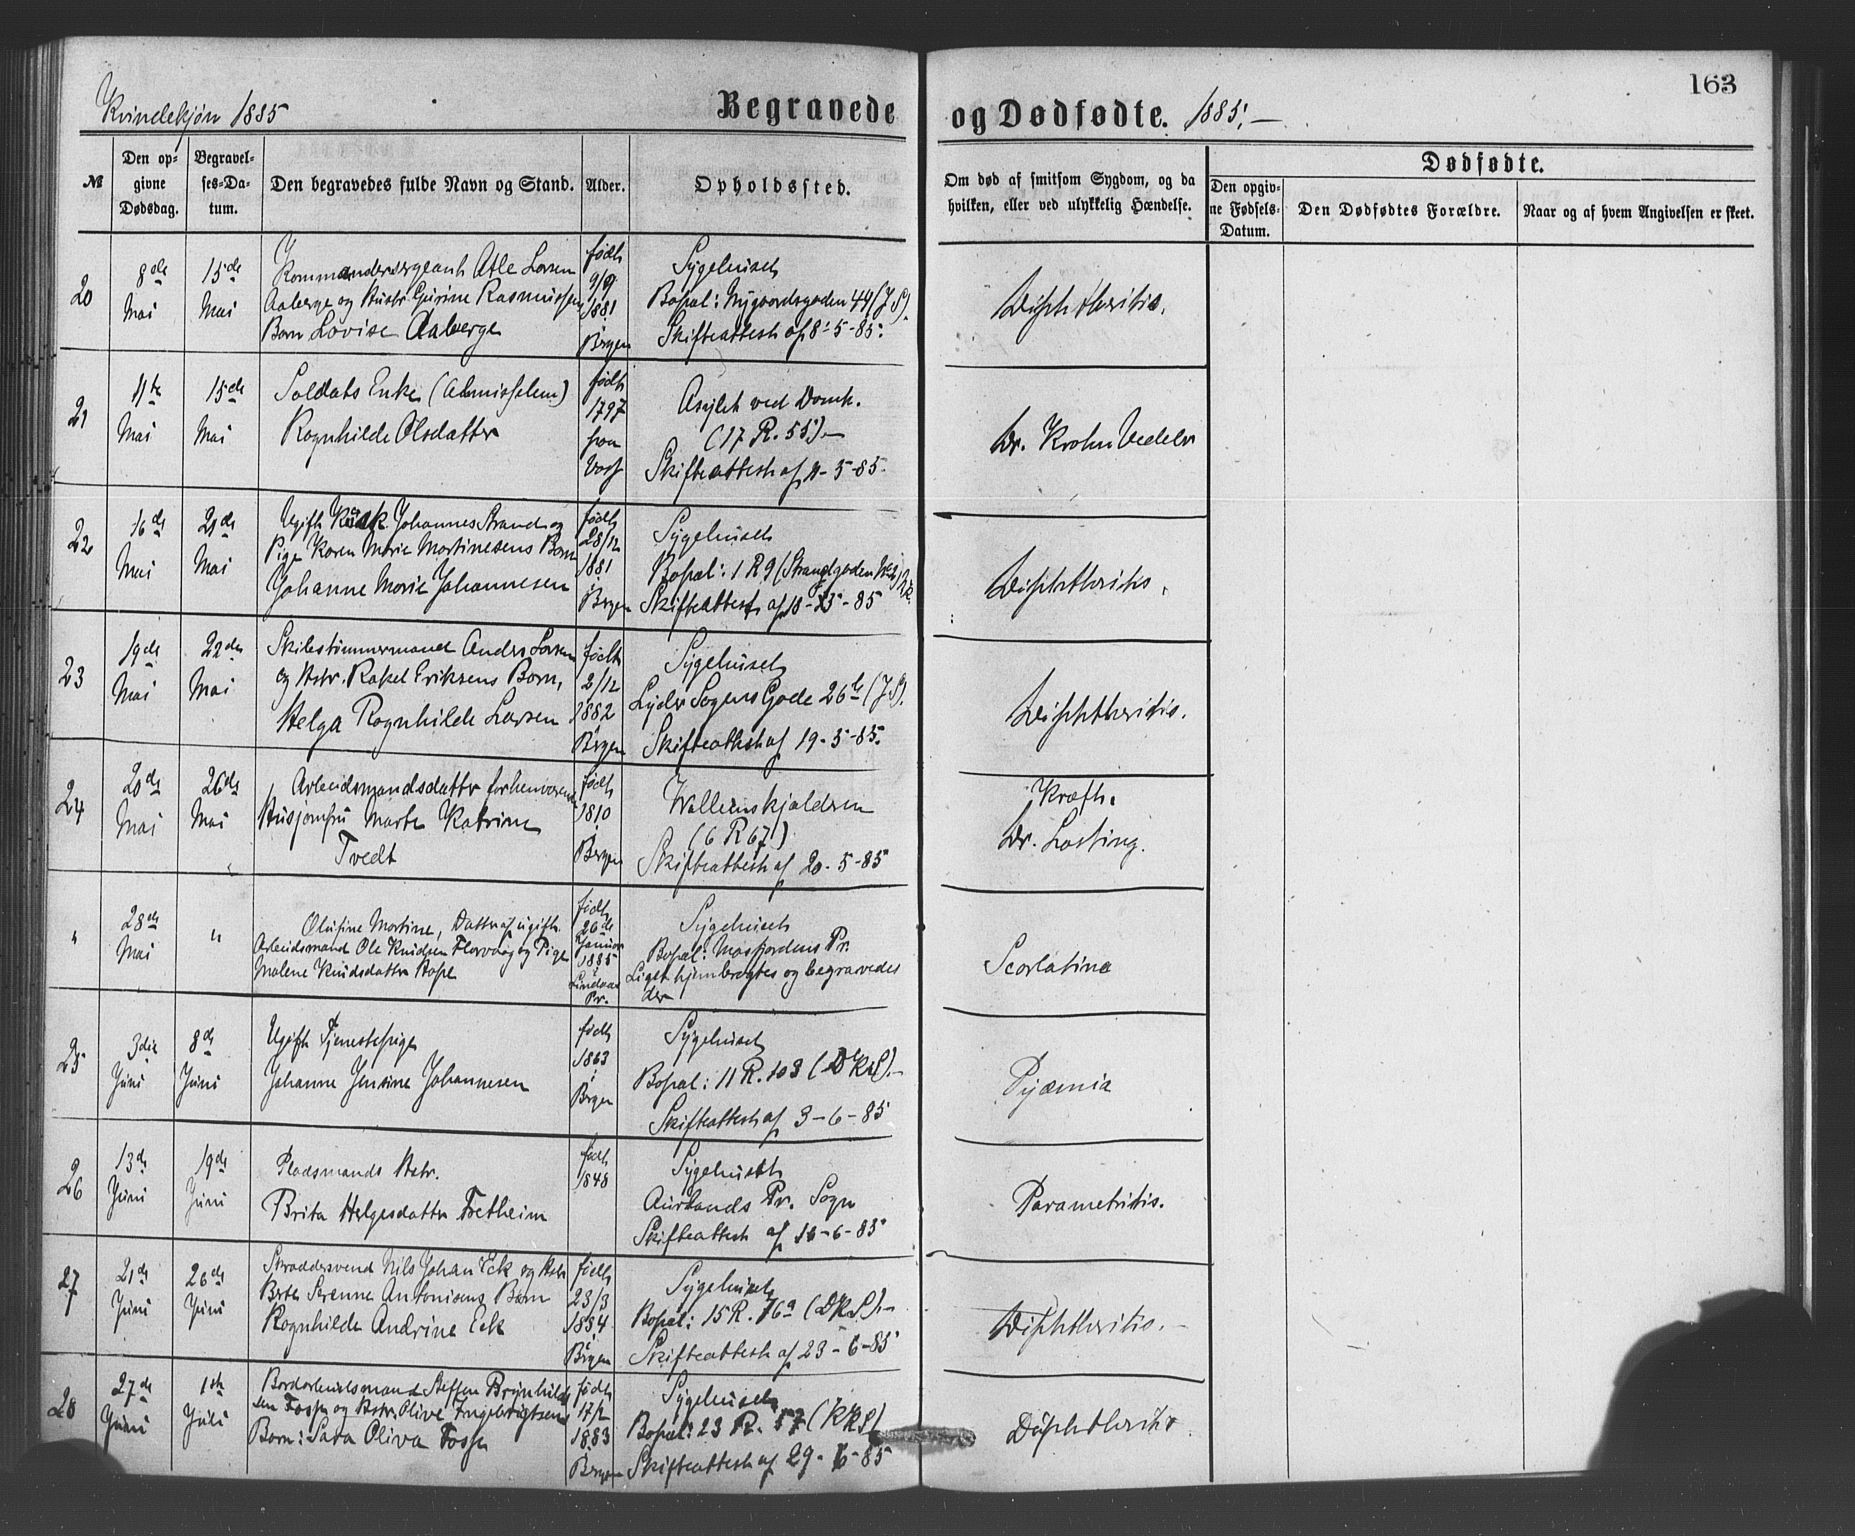 Kvindekjøn 1885
Begravede og Dødfødte. 1885,—
163
№
Den opgivne Dødsdag.
Begravelses-Datum.
Den begravedes fulde Navn og Stand.
Alder.
Opholdssted.
Om død af smitsom Sygdom, og da hvilken, eller ved ulykkelig Hændelse.
Dødfødte.
Den opgivne Fødsels-Datum.
Den Dødfødtes Forældre.
Naar og af hvem Angivelsen er skeet.
20
8de Mai
15de Mai
Kommandersergeant Atle Larsen
Aaberge og Hustr. Gurine Rasmussen
Barn Lovise Aaberge
født 9/9 1881 i Bergen
Sygehuset
Bopæl: Nygaardsgaden 44 (J S).
Skifteattest af 8-5-85.
Diphtheritis.
21
11te Mai
15de Mai
Soldats Enke (Almisselem)
Ragnhilde Olsdatter
født 1797 paa Voss
Asylet ved Domk.
(17 R. 55).—
Skifteattest af 11-5-85.
Dr. Krohn Vedeler
22
16de Mai
21de Mai
Ugift Kusk Johannes Strand og
Pige Karen Marie Martinesens Barn
Johanne Marie Johannesen
født 28/12 1881 i Bergen
Sygehuset
Bopæl: 1 R 9 (Strandgaden
Skifteattest af 18-5-85
Diphtheritis.
23
19de Mai
22de Mai
Skibstømmermand Anders Larsen
og Hstr. Rakel Eriksens Barn,
Helga Ragnhilde Larsen
født 2/12 1882 i Bergen
Sygehuset
Lyder Sagens Gade 26 b (J S).
Skifteattest af 19-5-85.
Diphtheritis.
24
20de Mai
26de Mai
Arbeidsmandsdatter forhenværende
Husjomfru Marte Katrine
Tvedt
født 1810 i Bergen
Wallemskjoldsen
(6 R 67)
Skifteattest af 20-5-85
Kræft.
Dr. Losting.
"
28de Mai
"
Olufine Martine, Datter af ugift
Arbeidsmand Ole Knudsen Florvaag og Pige
Malene Knudsdatter Hope
født 26de Januar 1885 i Lindaas Pr.
Sygehuset
Bopæl: Masfjordens Pr.
Liget hjembragtes og begravedes
der
Scarlatina
25
3die Juni
8de Juni
Ugift Tjenestepige
Johanne Jensine Johannesen
født 1863 i Bergen
Sygehuset
Bopæl: 11 R. 103 (DKS).—
Skifteattest af 3-6-85
Pyæmia
26
13de Juni
19de Juni
Pladsmands Hstr.
Brita Helgesdatter Fretheim
født 1848
Sygehuset
Aurlands Pr. Sogn
Skifteattest af 16-6-85
Parametritis.
27
21de Juni
26de Juni
Skræddersvend Nils Johan Eck og Hstr
Berte Serenne Antonisens Barn
Ragnhilde Andrine Eck
født 23/3 1884 i Bergen
Sygehuset
Bopæl: 15 R. 76a (DKS).—
Skifteattest af 23-6-85
Diphtheritis.—
28
27de Juni
1ste Juli
Bordarbeidsmand Steffen Brynhild-
sen Fosse og Hstr. Olive Ingebrigtsens
Barn: Sara Oliva Fosse
født 17/2 1883 i Bergen
Sygehuset
Bopæl: 23 R. 57 (KKS)
Skifteattest af 29-6-85
Diphtheritis